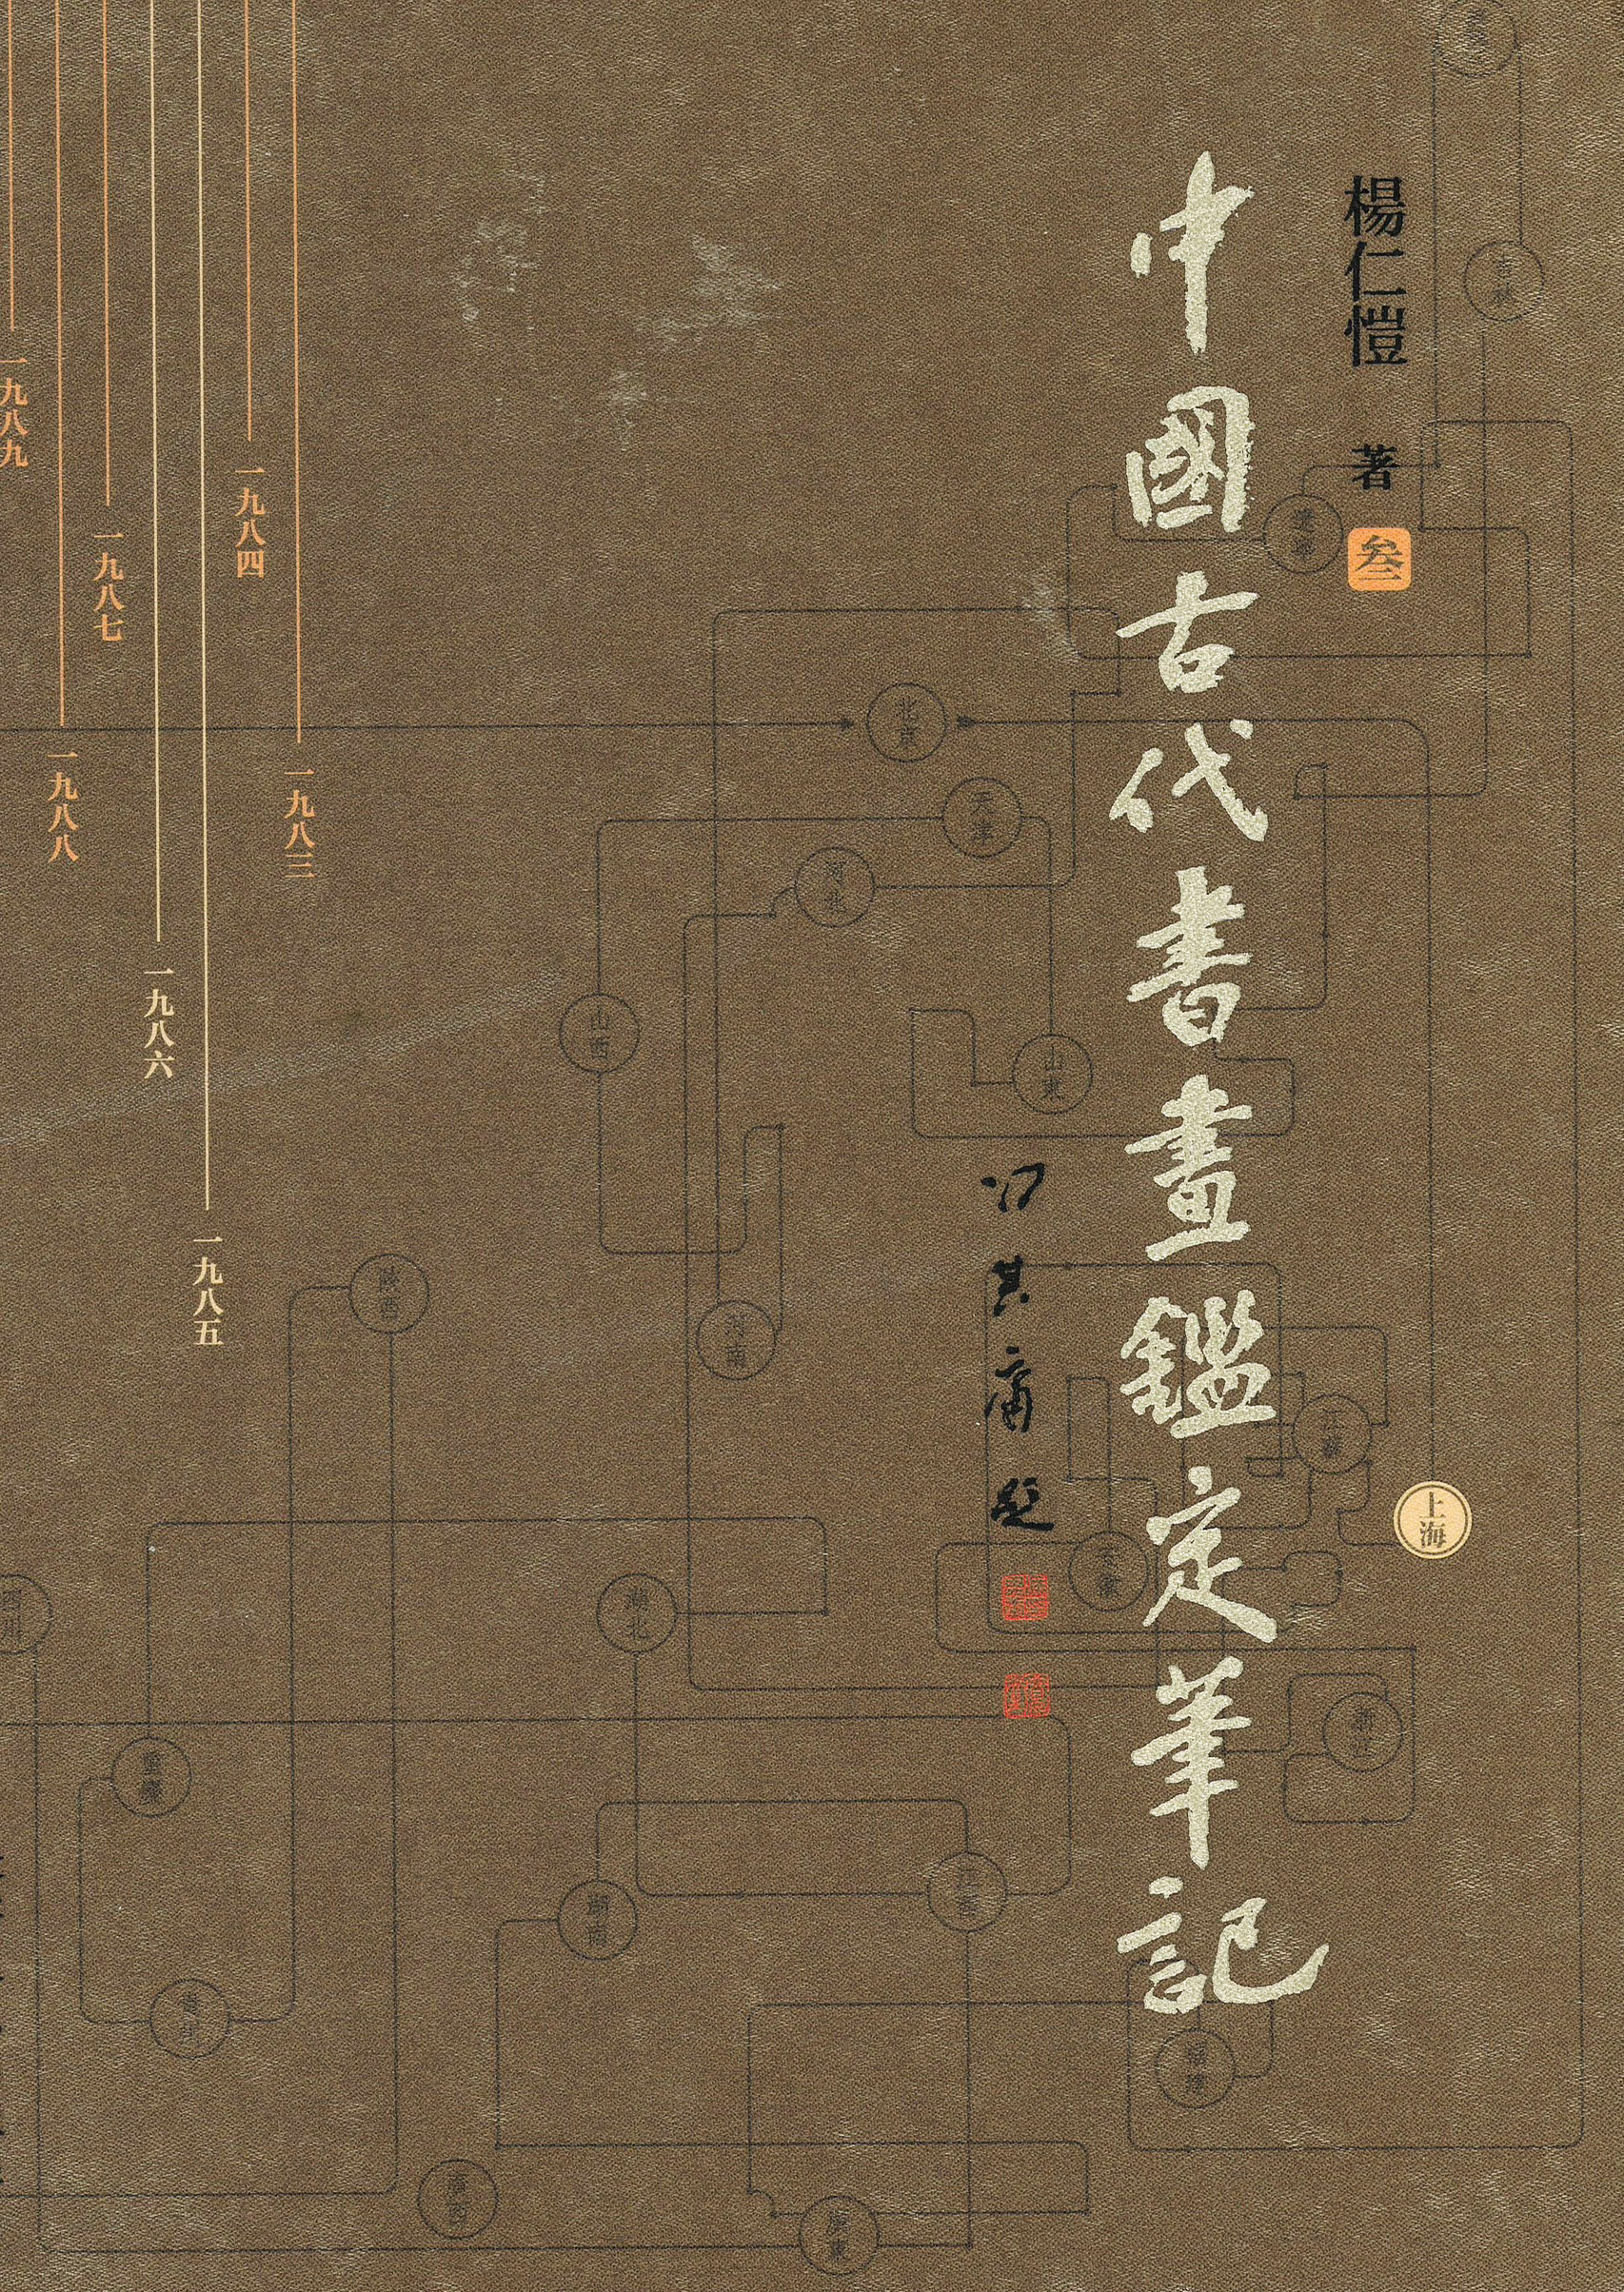 楊仁愷 著
叁
中國古代書畫鑑定筆記
馮其庸題
上海
一九八三
一九八四
一九八五
一九八六
一九八七
一九八八
一九八九
吉林
遼寧
北京
天津
河北
山西
山東
陝西
河南
江蘇
安徽
湖北
浙江
重慶
湖南
江西
四川
福建
廣西
廣東